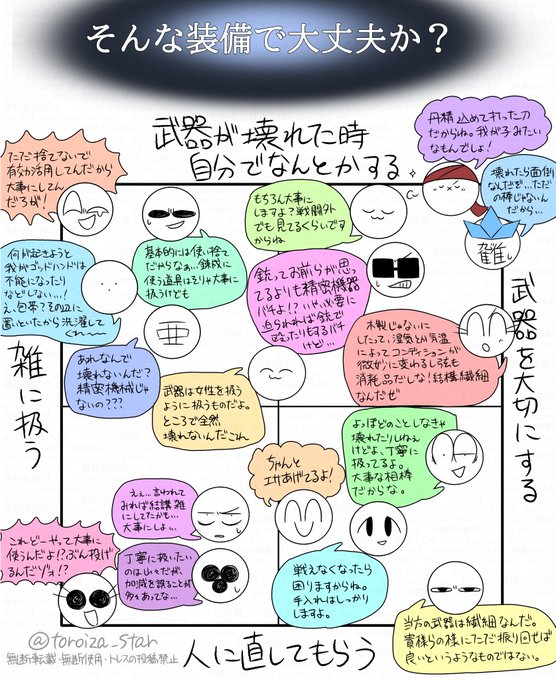 そんな装備で大丈夫か？
武器が壊れた時
自分でなんとかする
丹精込めて打った刀
だからね。我が子みたい
なもんでしょ！
ただ捨てないで
有効活用してんだから
大事にしてん
だろが！
壊れたら面倒
なんだぞ…ただ
の棒じゃない
んだから…
雑
もちろん大事に
しますよ？戦闘外
でも見てるくらいです
からね
基本的には使い捨て
だからなぁ…錬成に
使う道具はそりゃ大事に
扱うけども
何が起ころうと
我がゴッドハンドは
不能になったり
などしない…！
え、包帯？その辺に
置いといたから洗濯して
くれ〜
銃ってお前らが思
てるよりも精密機器
バチよ!?いや必要に
迫られれば銃で
殴ったりもするバチ
けど…
武器を大切にする
雑に扱う
木製じゃないに
したって、湿気とか気温
によってコンディションが
微妙に変わるし弦も
消耗品だしな！結構繊細
なんだぜ
あれなんで
壊れないんだ？
精密機械じゃ
ないの？？？
武器は女性を扱う
ように扱うものだよ。
ところで全然
壊れないんだこれ
よっぽどのことしなきゃ
壊れたりしねぇ
けどよ、丁寧に
扱ってるよ。
大事な相棒
だからな。
ちゃんと
エサあげてるよ！
ええ…言われて
みれば結構雑
にしてたかも…
大事にしよ…
これどーやって大事に
使うんだよ!?ぶん投げ
るんだゾォ!?
丁寧に扱いたい
のは山々だが、
加減を誤ることが
多々あってな…
戦えなくなったら
困りますからね。
手入れはしっかり
しますよ。
当方の武器は繊細なんだ。
貴様らの様にただ振り回せば
良いというようなものではない。
@toroiza_star
無断転載・無断使用・トレスの投稿禁止
人に直してもらう